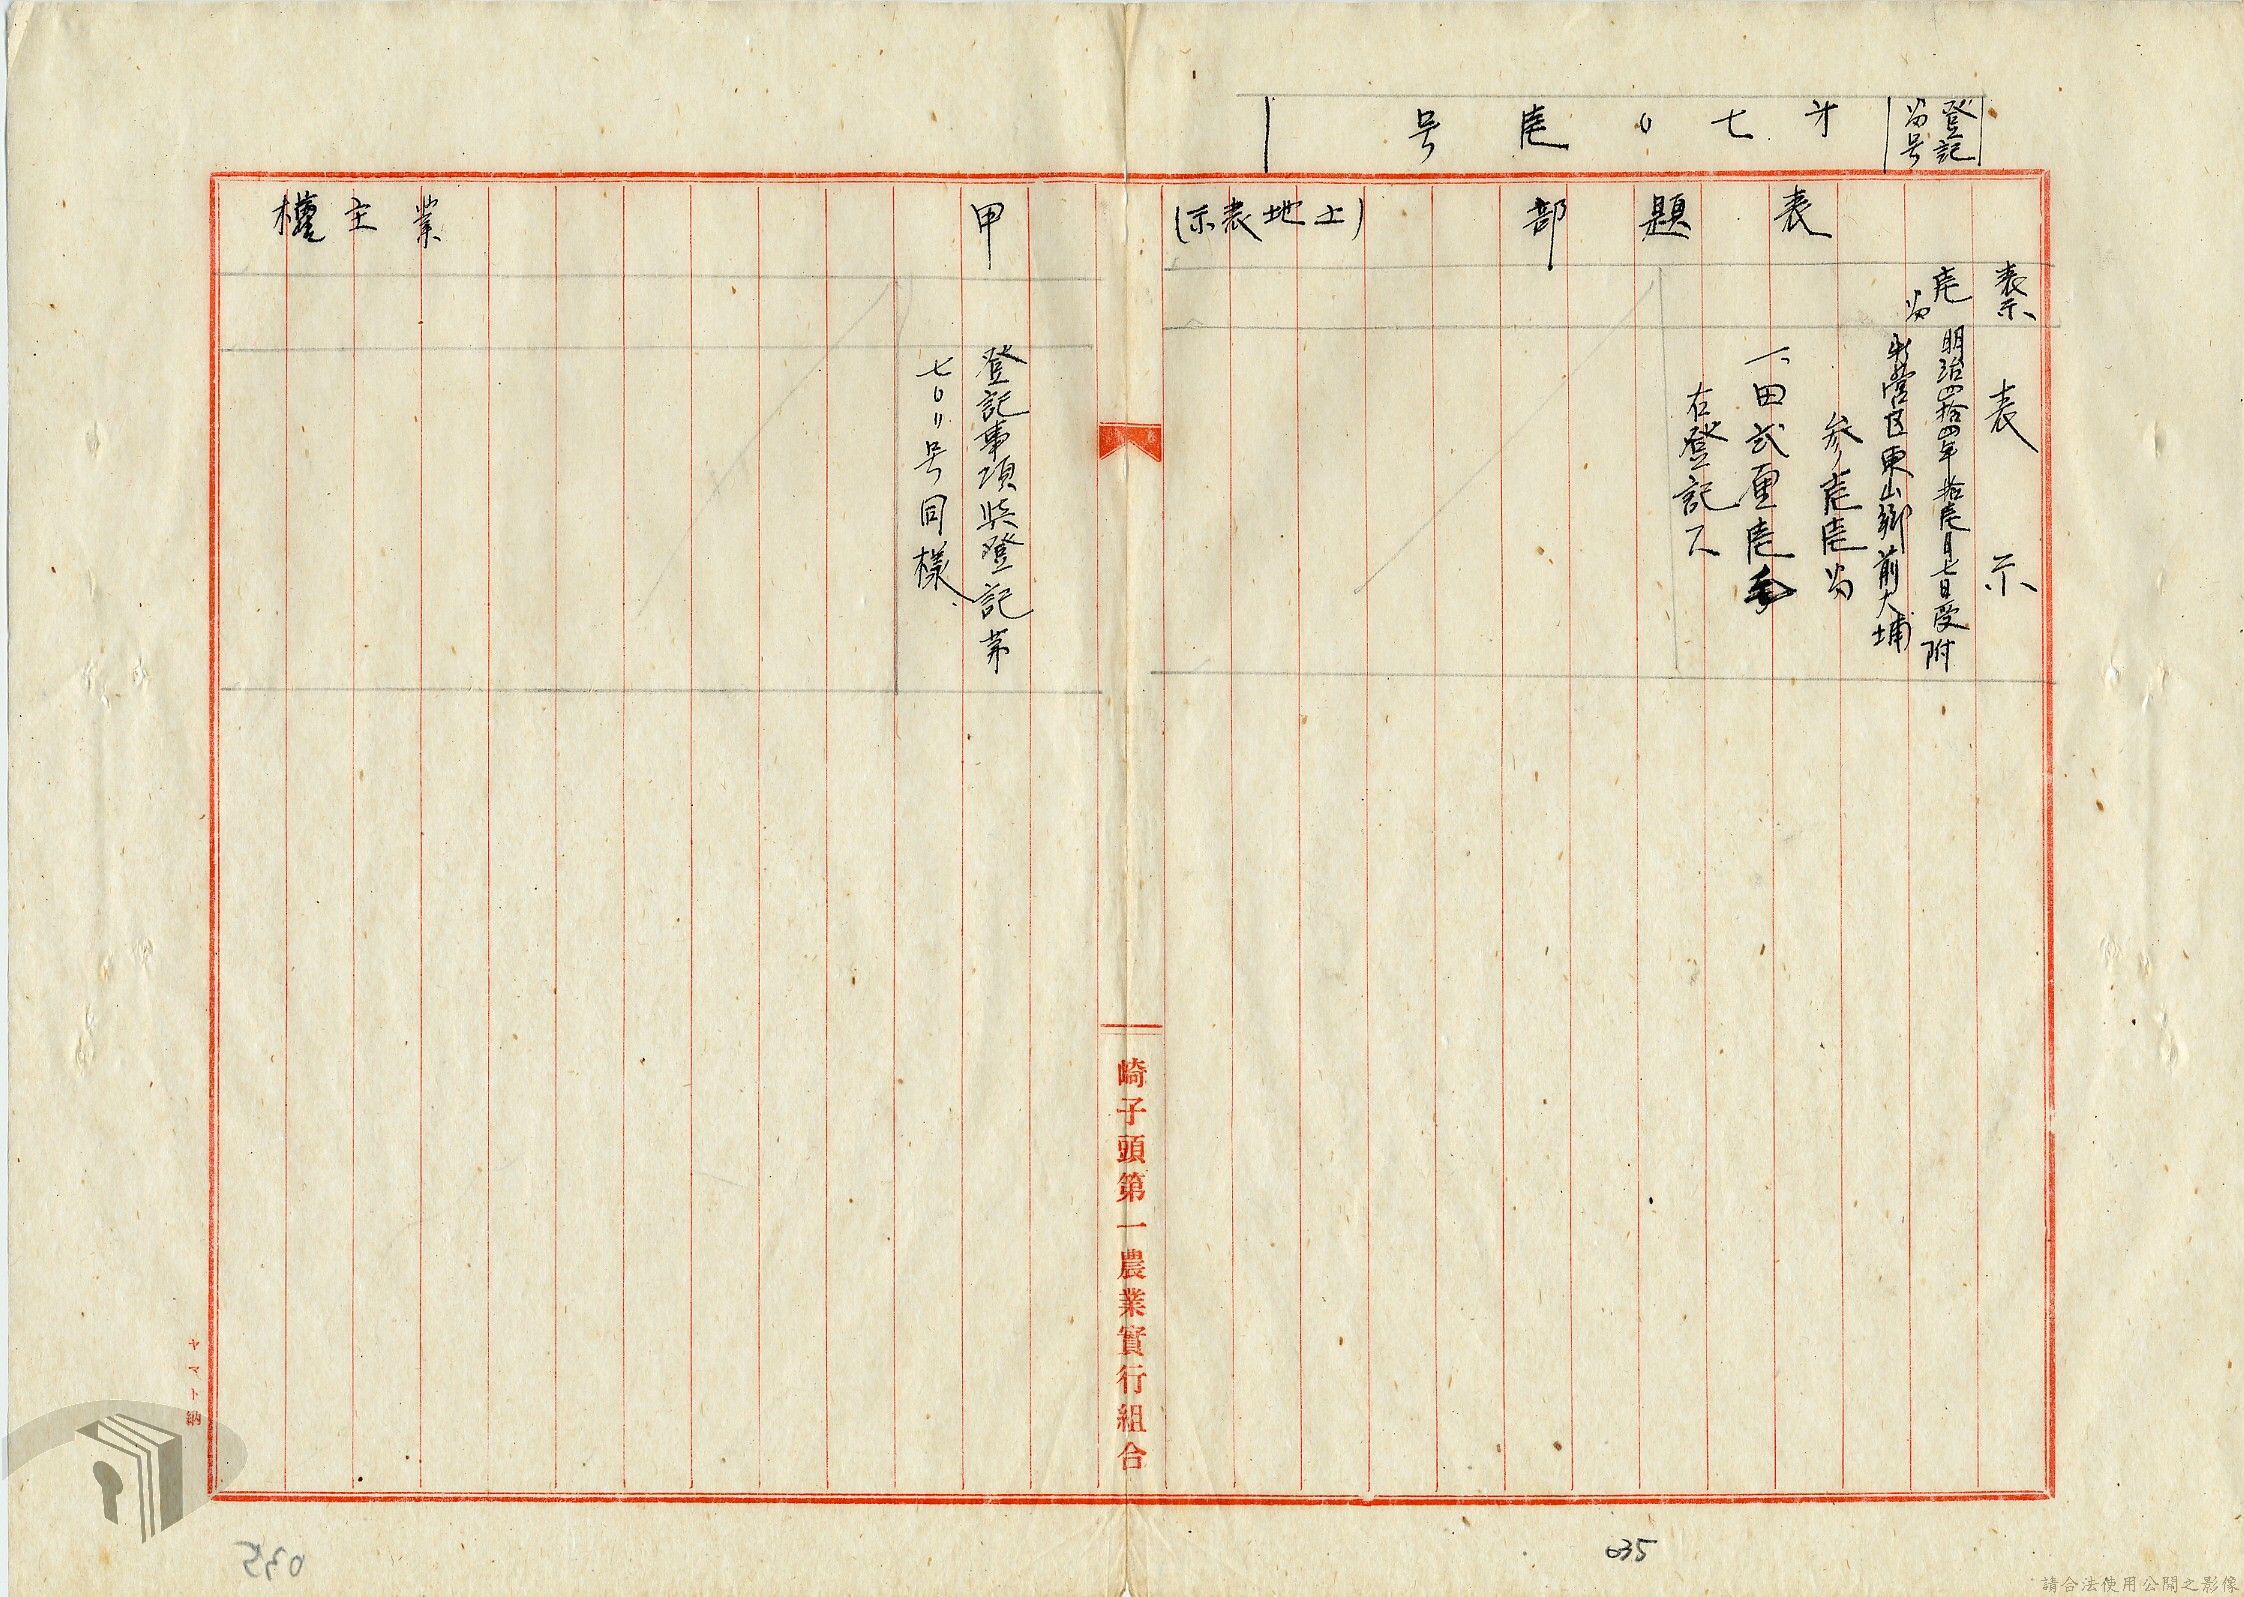 登記
番号
才七〇壱号
表題部
(土地表示)
表示
表示
壱番
明治四拾四年拾壱月七日受附
新営区東山郷前大埔
参壱壱番
一、田弐厘壱毛
右登記ス
甲
業主權
登記事項與登記第
七〇〇号同様
崎子頭第一農業實行組合
035
035
請合法使用公開之影像